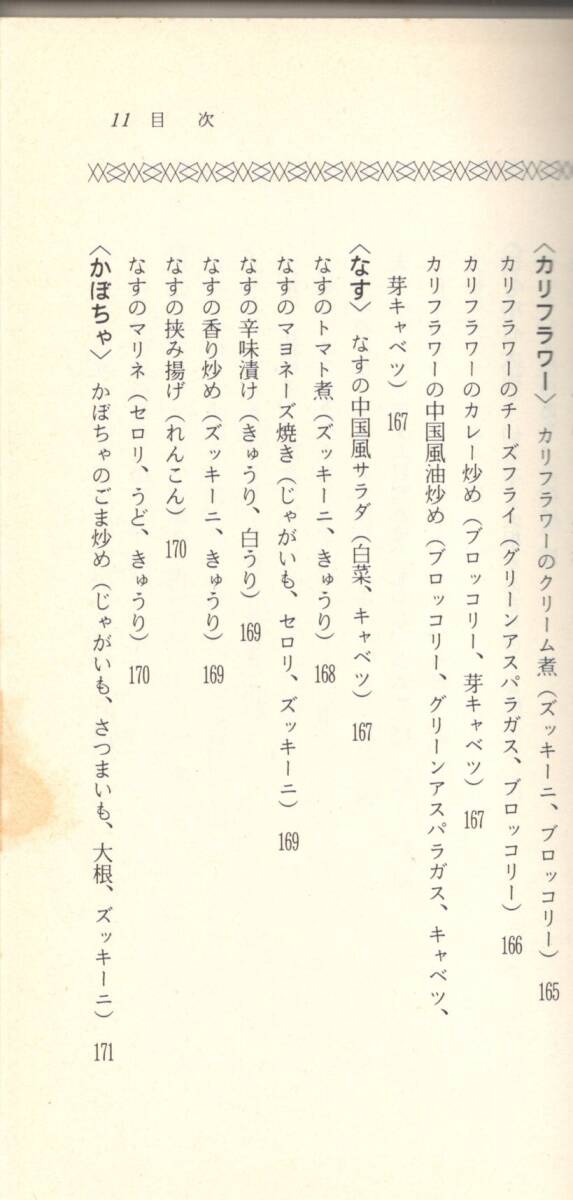 11 目 次
〈カリフラワー〉 カリフラワーのクリーム煮（ズッキーニ、ブロッコリー） 165
カリフラワーのチーズフライ（グリーンアスパラガス、ブロッコリー） 166
カリフラワーのカレー炒め（ブロッコリー、芽キャベツ） 167
カリフラワーの中国風油炒め（ブロッコリー、グリーンアスパラガス、キャベツ、
芽キャベツ） 167
〈なす〉 なすの中国風サラダ（白菜、キャベツ） 167
なすのトマト煮（ズッキーニ、きゅうり） 168
なすのマヨネーズ焼き（じゃがいも、セロリ、ズッキーニ） 169
なすの辛味漬け（きゅうり、白うり） 169
なすの香り炒め（ズッキーニ、きゅうり） 169
なすの挟み揚げ（れんこん） 170
なすのマリネ（セロリ、うど、きゅうり） 170
〈かぼちゃ〉 かぼちゃのごま炒め（じゃがいも、さつまいも、大根、ズッキーニ） 171